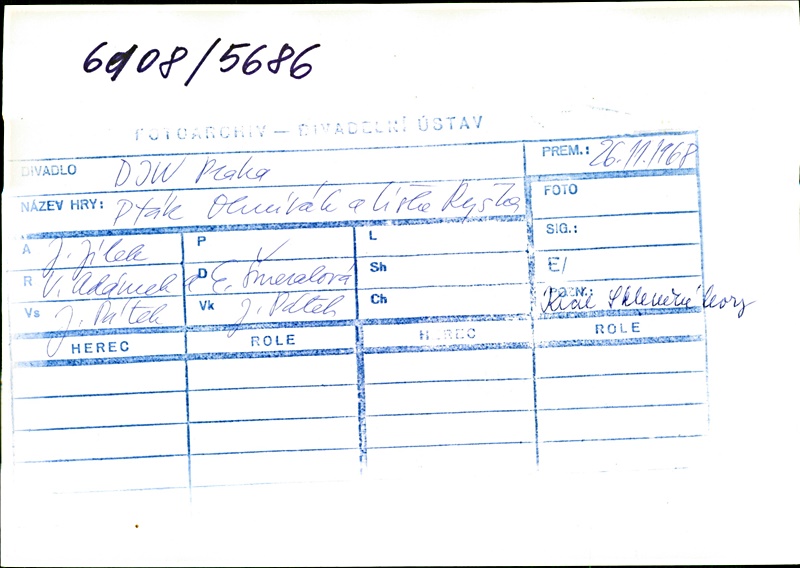 6108/5686
FOTOARCHIV — DIVADELNÍ ÚSTAV
DIVADLO DJW Praha PREM.: 26.11.1968
NÁZEV HRY: Pták Ohnivák a liška Ryška FOTO
A J. Jílek P L SIG.:
R V. Adámek a E. Šmeralová D Sh E/
Vs J. Pátek Vk J. Pátek Ch Král Skleněné hory
HEREC ROLE HEREC ROLE